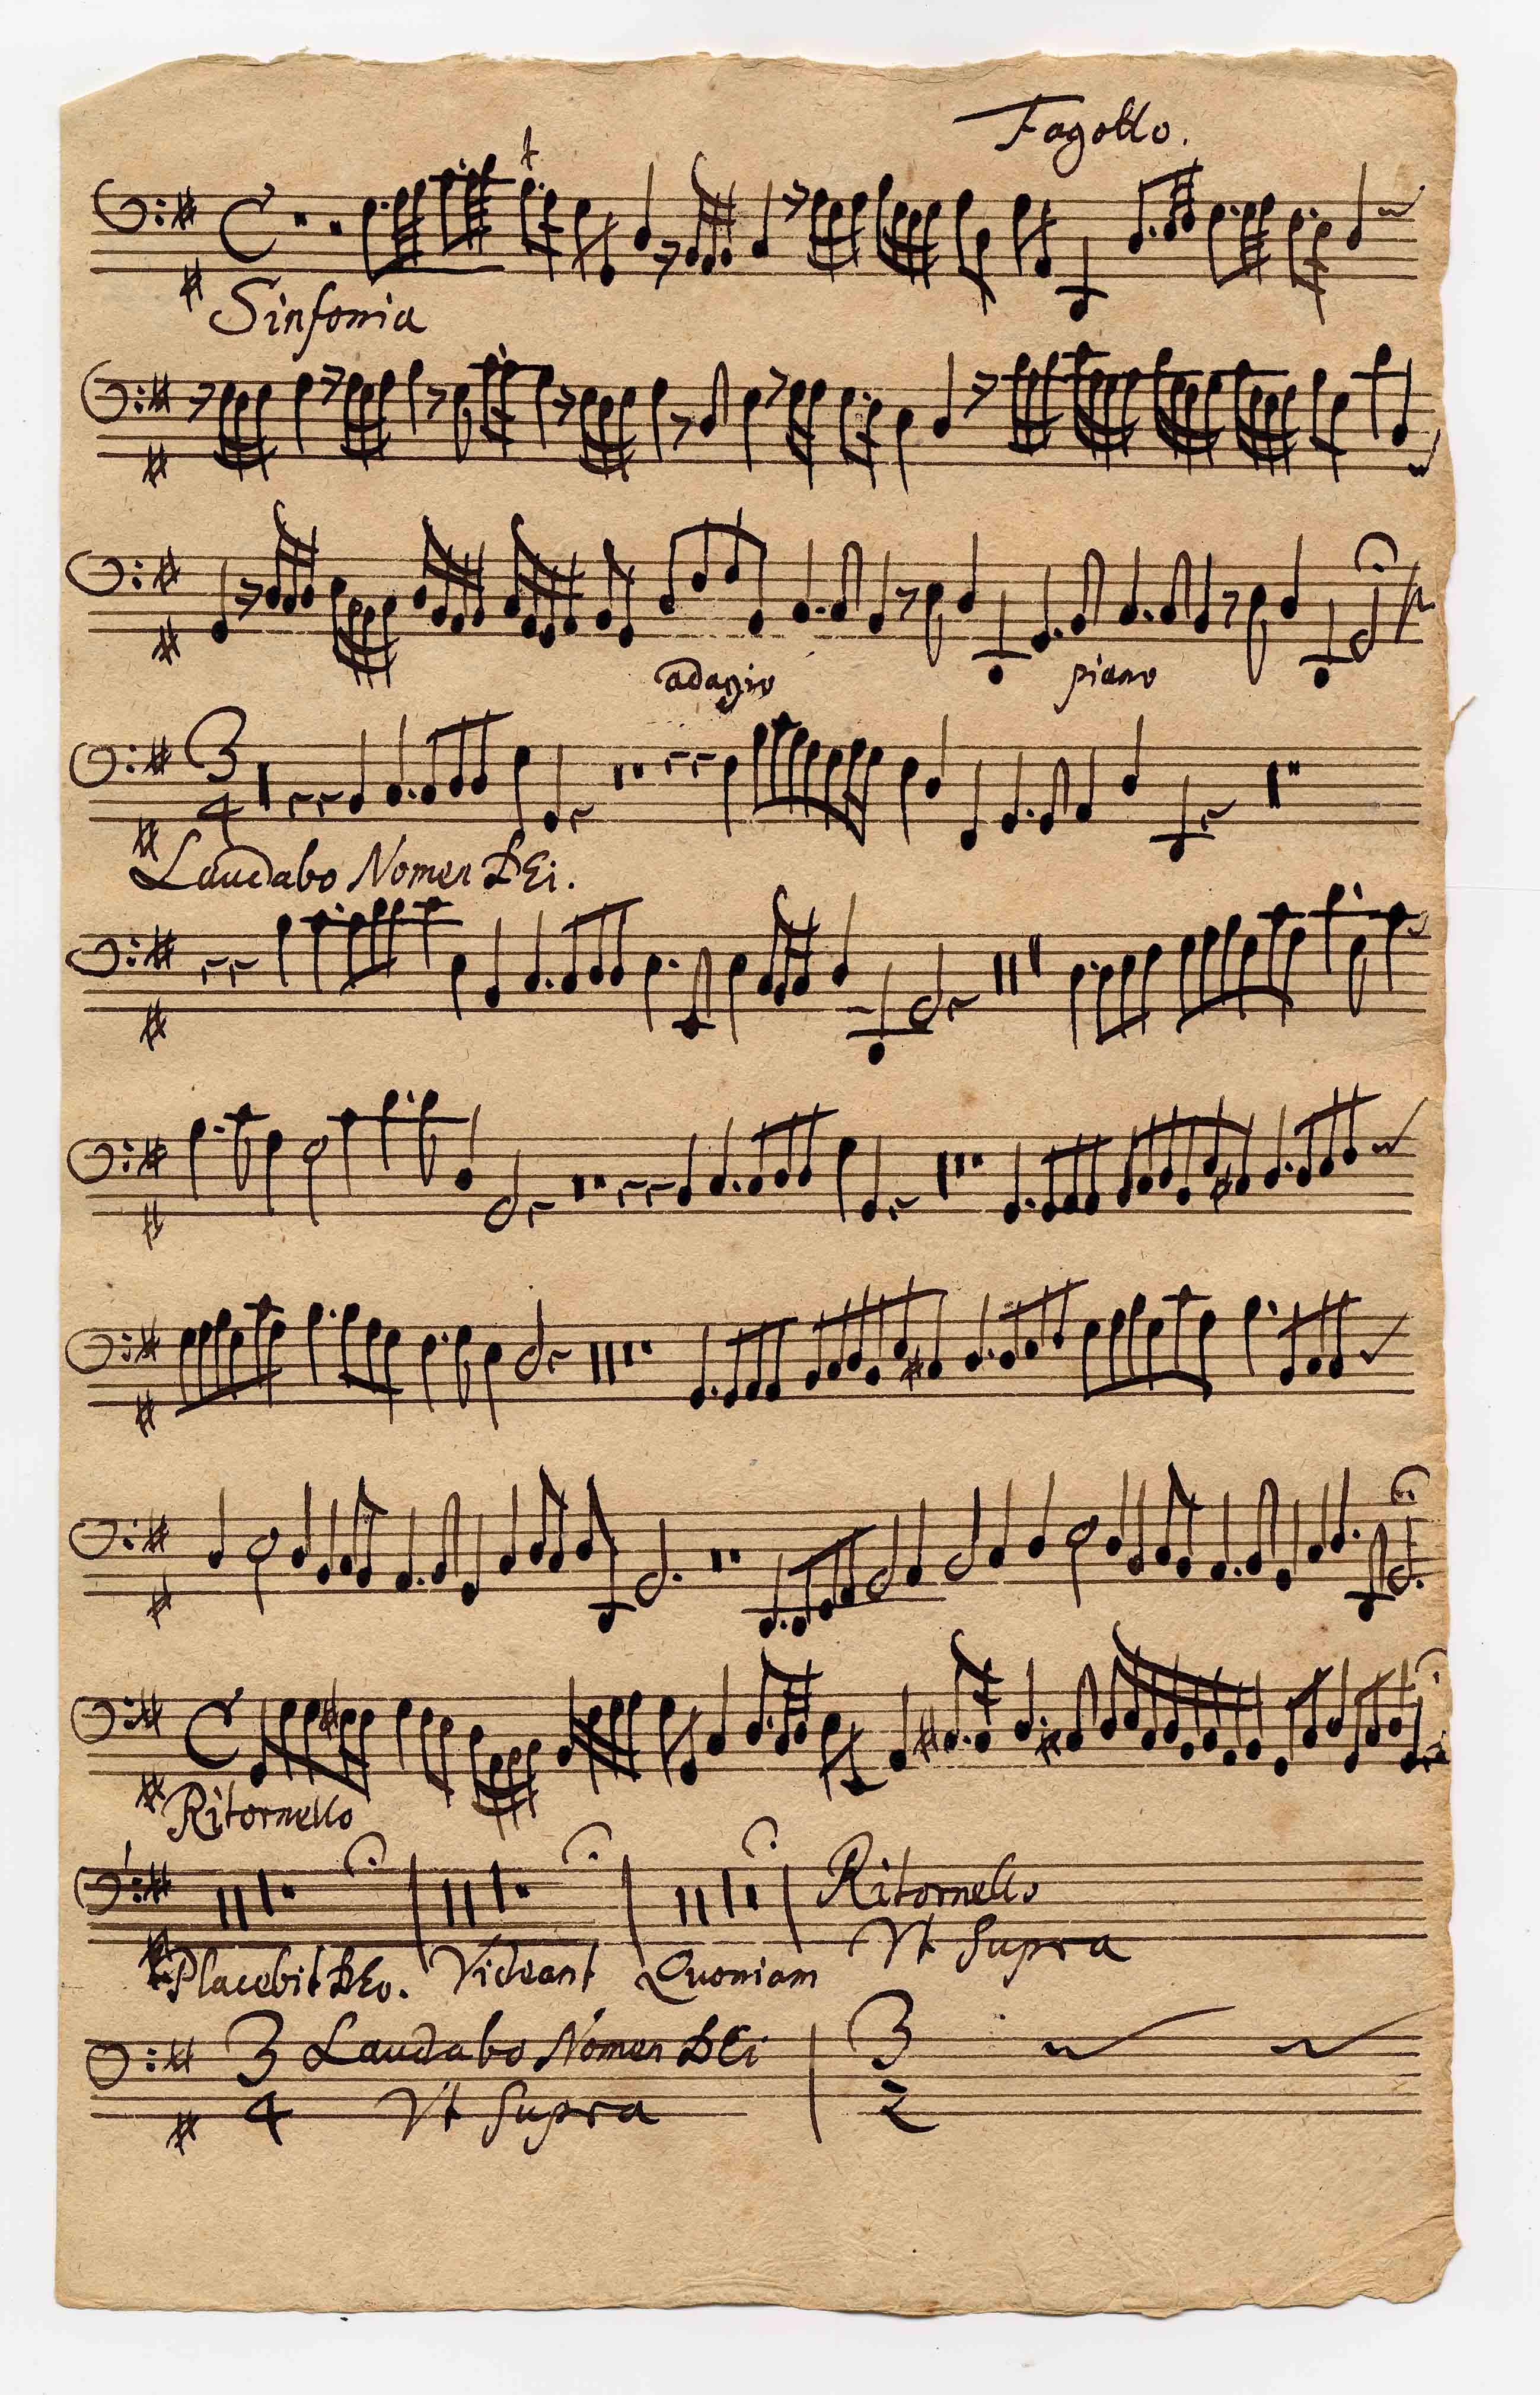 Fagotto.
Sinfonia
adagio piano
3
4
Laudabo Nomen DEi.
Ritornello
Ritornello
Vt Supra
Placebit DEo. Videant Quoniam
3 Laudabo Nomen DEi 3
4 Vt Supra 2